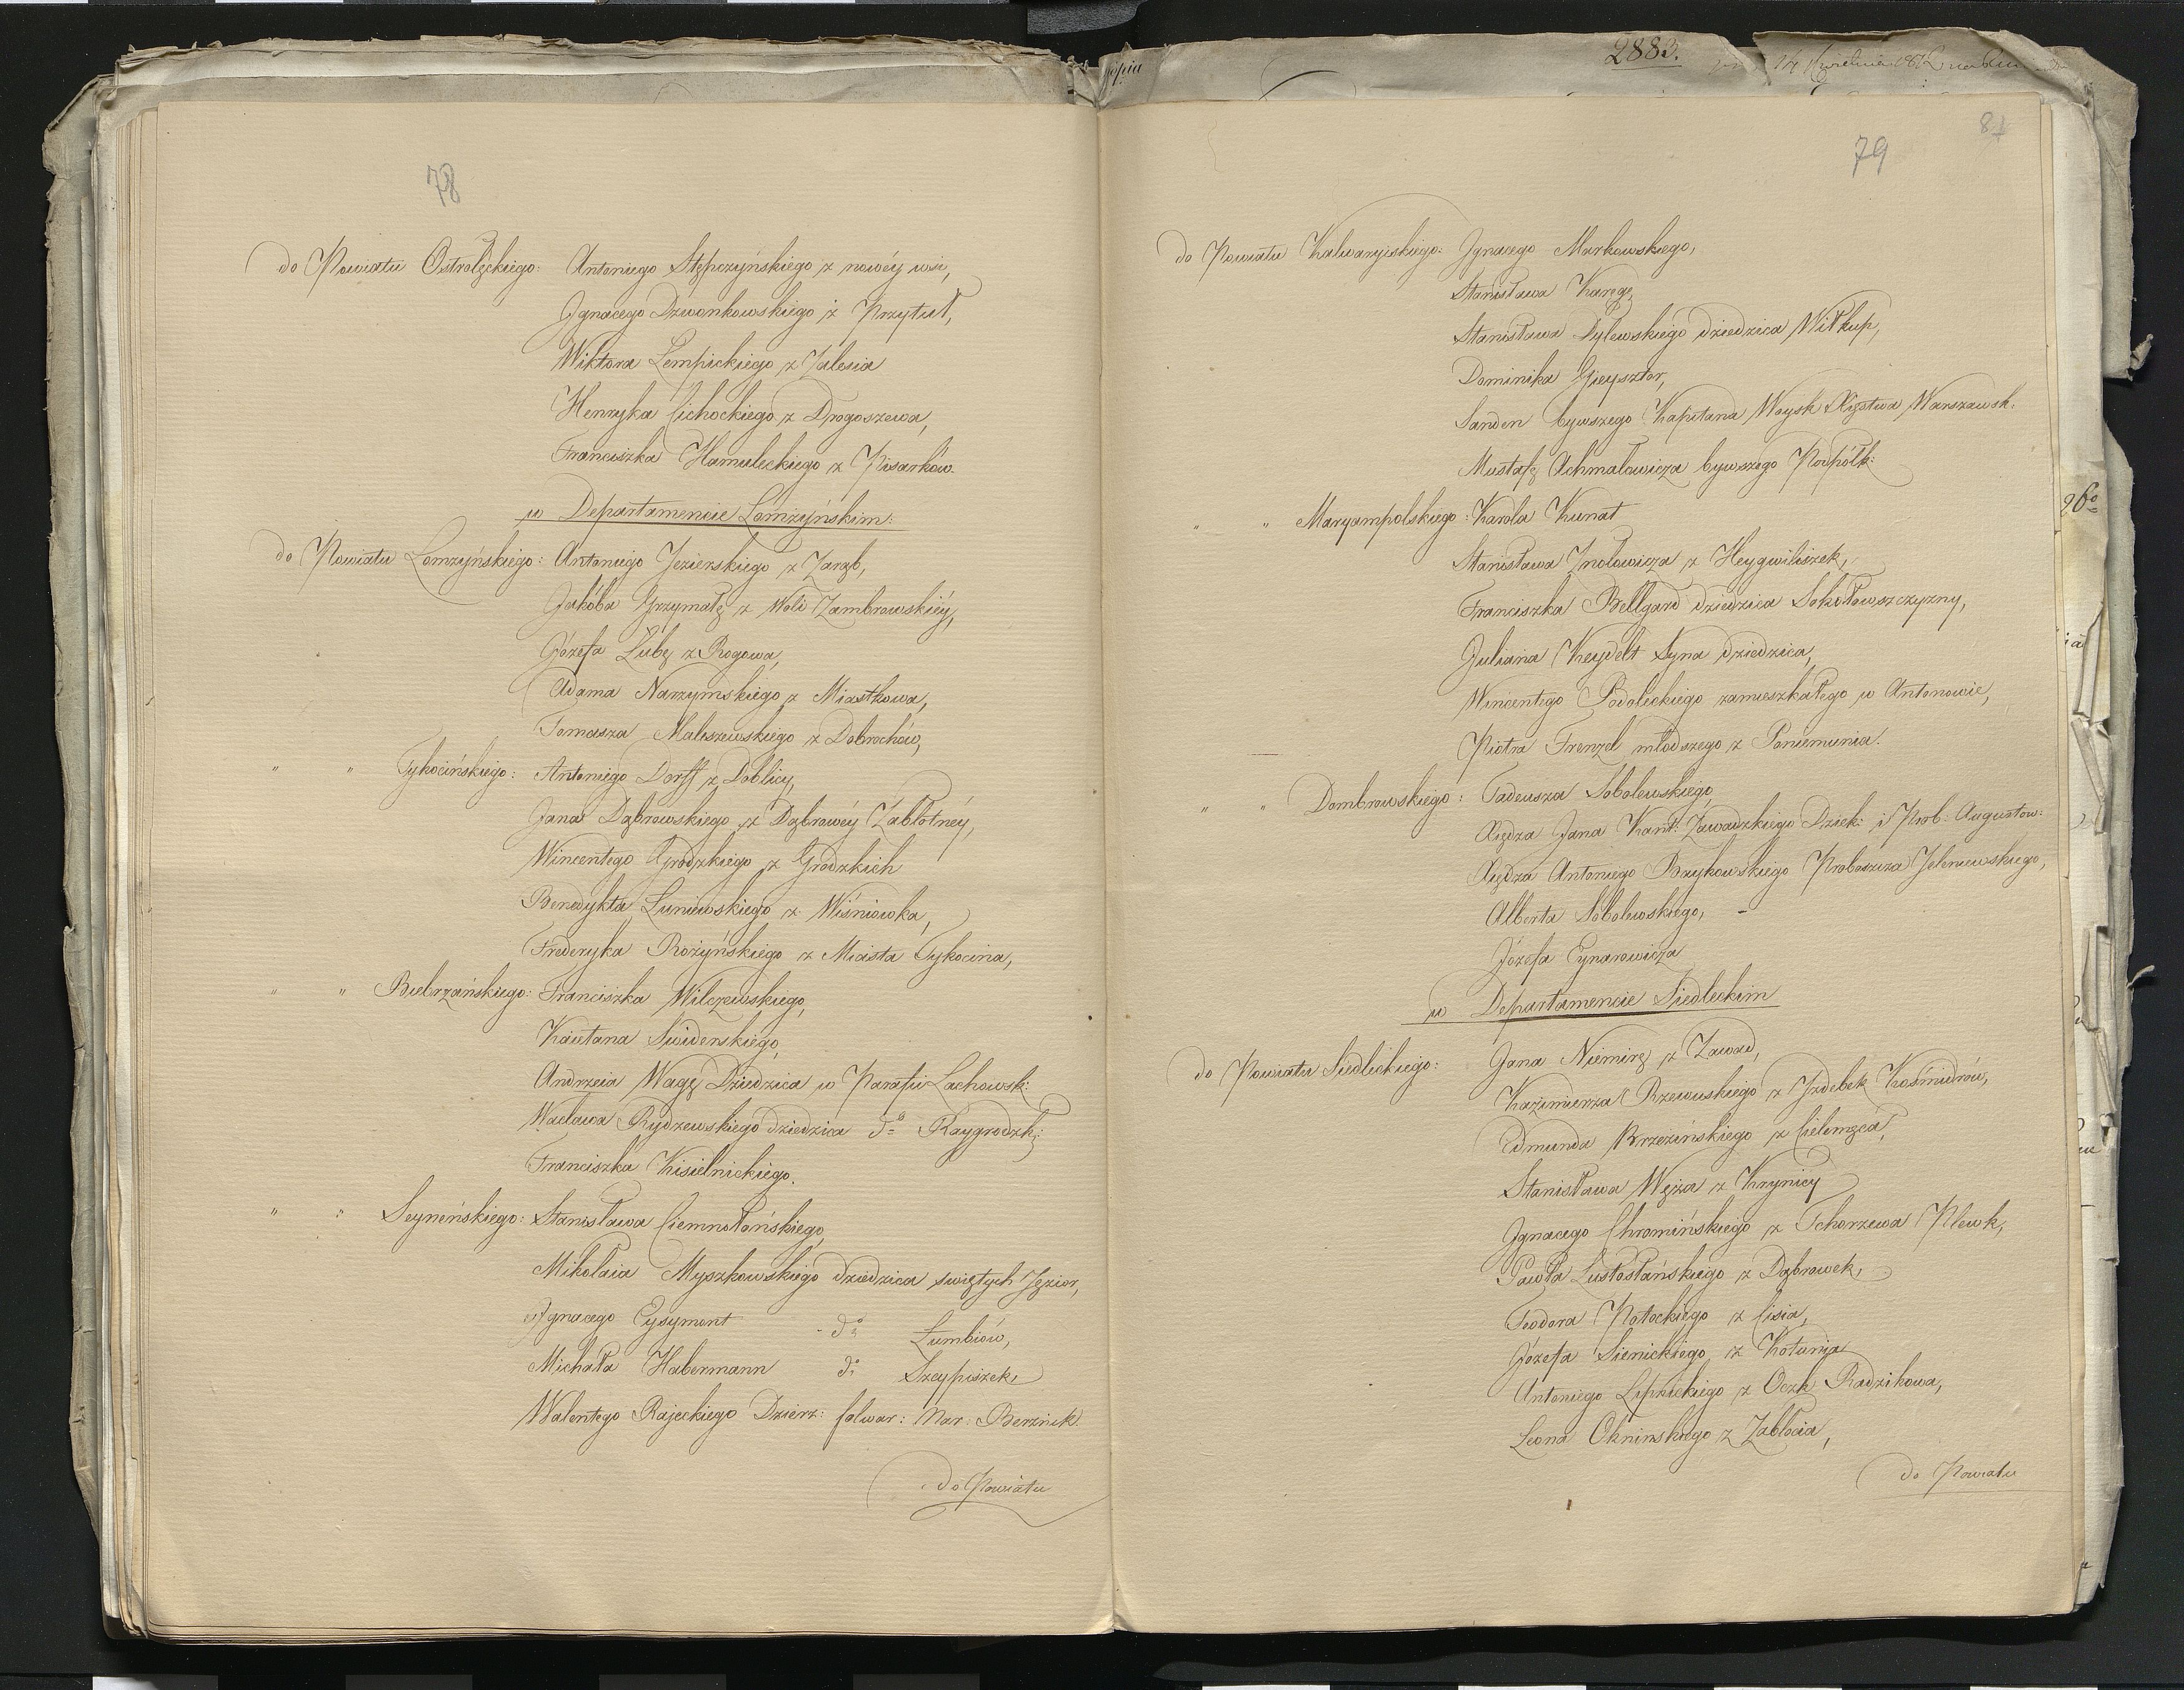 78
do Powiatu Ostrołęckiego: Antoniego Stępczyńskiego z nowéy wsi,
Jgnacego Dzwonkowskiego z Przytuł,
Wiktora Łempickiego z Zalesia
Henryka Cichockiego z Drogoszewa,
Franciszka Hamuleckiego z Pisarków.
w Departamencie Łomżyńskim:
do Powiatu Łomżyńskiego: Antoniego Jezierskiego z Zaręb,
Jakóba Grzymałę z Woli Zambrowskiéy,
Józefa Lubę z Rogowa,
Adama Narzymskiego z Miastkowa,
Tomasza Maleszewskiego z Dobrochów,
" " Tykocińskiego: Antoniego Dorff z Doblicy,
Jana Dąbrowskiego z Dąbrowéy Zabłotnéy,
Wincentego Grodzkiego z Grodzkich
Benedykta Łuniewskiego z Wiśniówka,
Frederyka Rożyńskiego z Miasta Tykocina,
" " Biebrzańskiego: Franciszka Wilczewskiego,
Kaietana Swiderskiego,
Andrzeia Wagę Dziedzica w Parafii Lachowsk:
Wacława Rydzewskiego dziedzica do Raygrodzk:
Franciszka Kisielnickiego.
" " Seyneńskiego: Stanisława Ciemnołońskiego,
Mikołaia Myszkowskiego dziedzica swiętych Jezior,
Jgnacego Eysymont do Łumbiów,
Michała Habermann do Szeypiszek,
Walentego Rajeckiego Dzierż: folwar: Nar. Berżnik.
do Powiatu
2883.
79
do Powiatu Kalwaryiskiego: Jgnacego Markowskiego,
Stanisława Karęgę,
Stanisława Dylewskiego dziedzica Wiłkup,
Dominika Gieysztor,
Sanden bywszego Kapitana Woysk Xięstwa Warszawsk:
Mustafę Achmatowicza bywszego Podpółk:
" " Maryampolskiego: Karola Kunat
Stanisława Jnołowicza z Heygwiliszek,
Franciszka Bellgard dziedzica Sokołowszczyzny,
Juliana Keydelt Syna dziedzica,
Wincentego Podoleckiego zamieszkałego w Antonowie,
Piotra Frenzel młodszego z Poniemunia.
" " Dombrowskiego: Tadeusza Sobolewskiego,
Xiędza Jana Kant: Zawadzkiego Dziek: i Prob: Augustow:
Xiędza Antoniego Brykowskiego Proboszcza Jeleniewskiego,
Alberta Sobolewskiego,
Józefa Eynarowicza
w Departamencie Siedleckim
do Powiatu Siedleckiego: Jana Niemirę z Zawad,
Kazimierza Rzewuskiego z Jzdebek Kośmidrów,
Edmunda Brzezińskiego z Cielemęca,
Stanisława Węża z Krynicy
Jgnacego Chromińskiego z Tchorzewa Plewk,
Pawła Lustosłańskiego z Dąbrowek,
Teodora Potockiego z Cisia,
Józefa Sienickiego z Kotunia
Antoniego Lipskiego z Oczk Radzikowa,
Leona Oknińskiego z Zabłocia,
do Powiatu